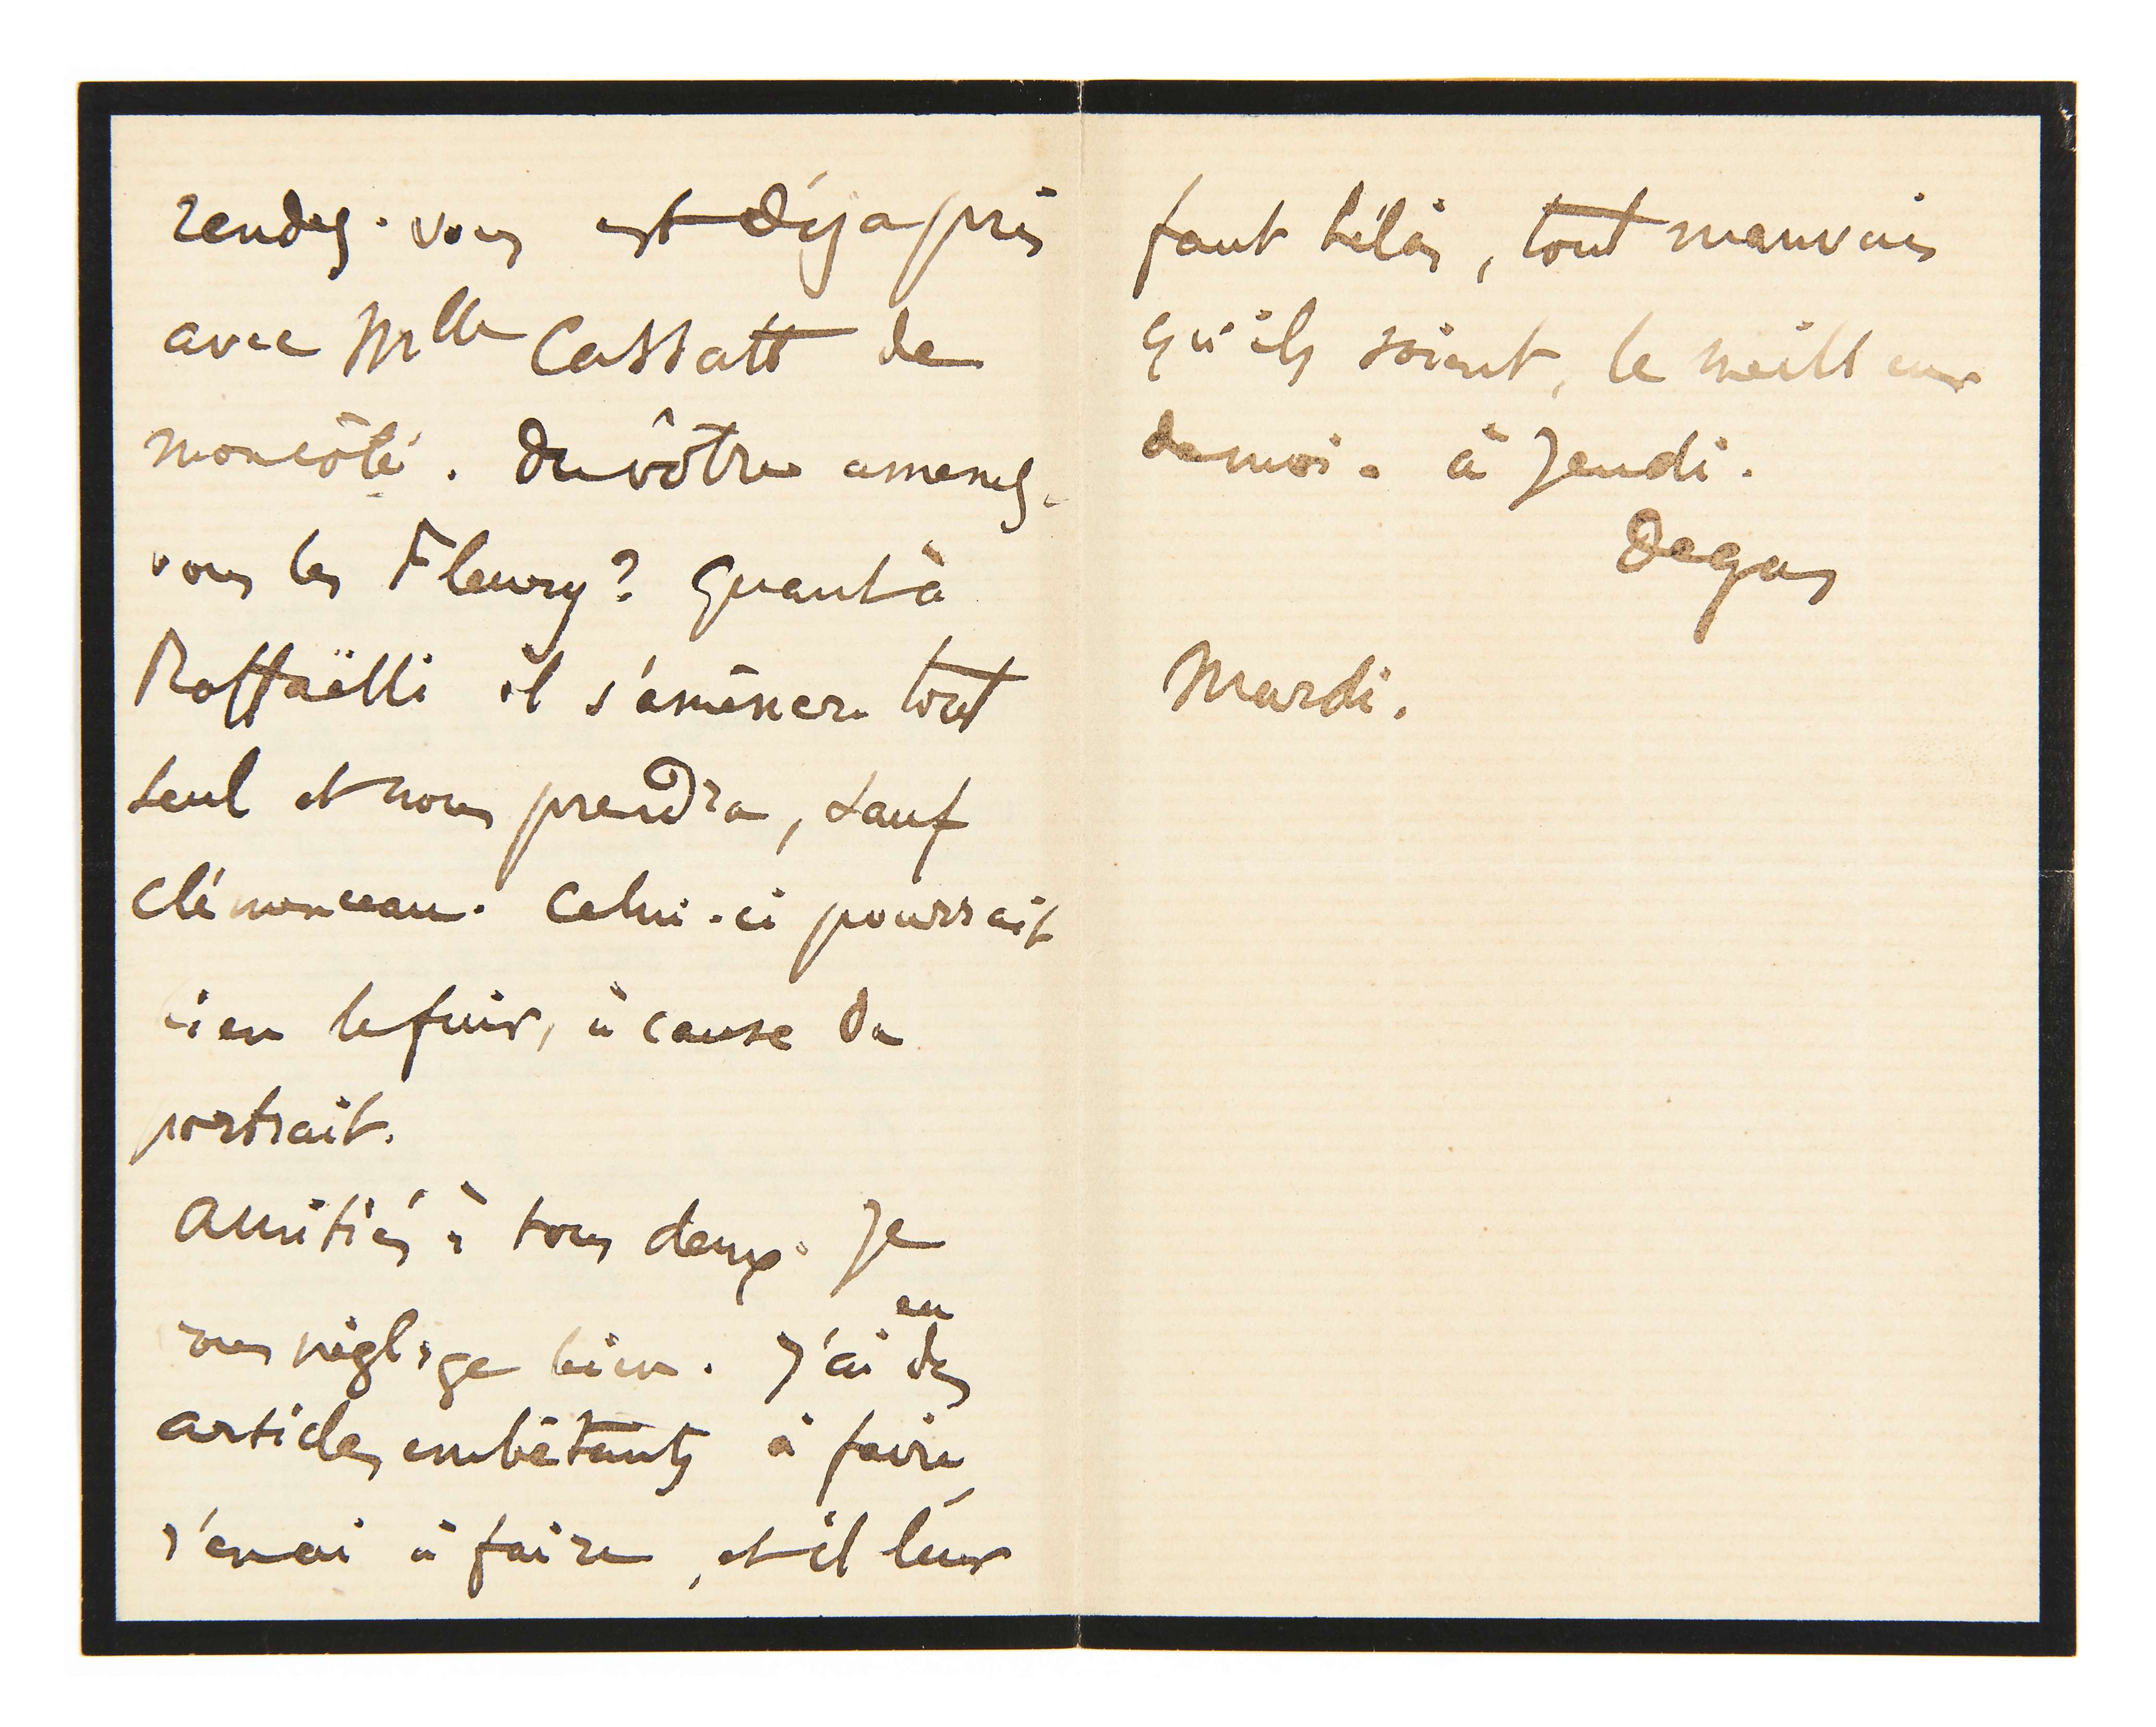 rendez-vous est déja pris
avec Mlle Cassatt de
mon côté. Du vôtre amenez-
vous les Fleury? Quant à
Raffaëlli il s'amènera tout
seul et nous prendra, sauf
Clémenceau. Celui-ci pourrait
bien le fuir, à cause du
portrait.
Amitiés à tous deux. Je
vous néglige bien. J'ai eu des
articles embêtants à faire,
j'en ai à faire, et il leur
faut hélàs, tout mauvais
qu'ils soient, le meilleur
de moi. à Jeudi.
Degas
Mardi.